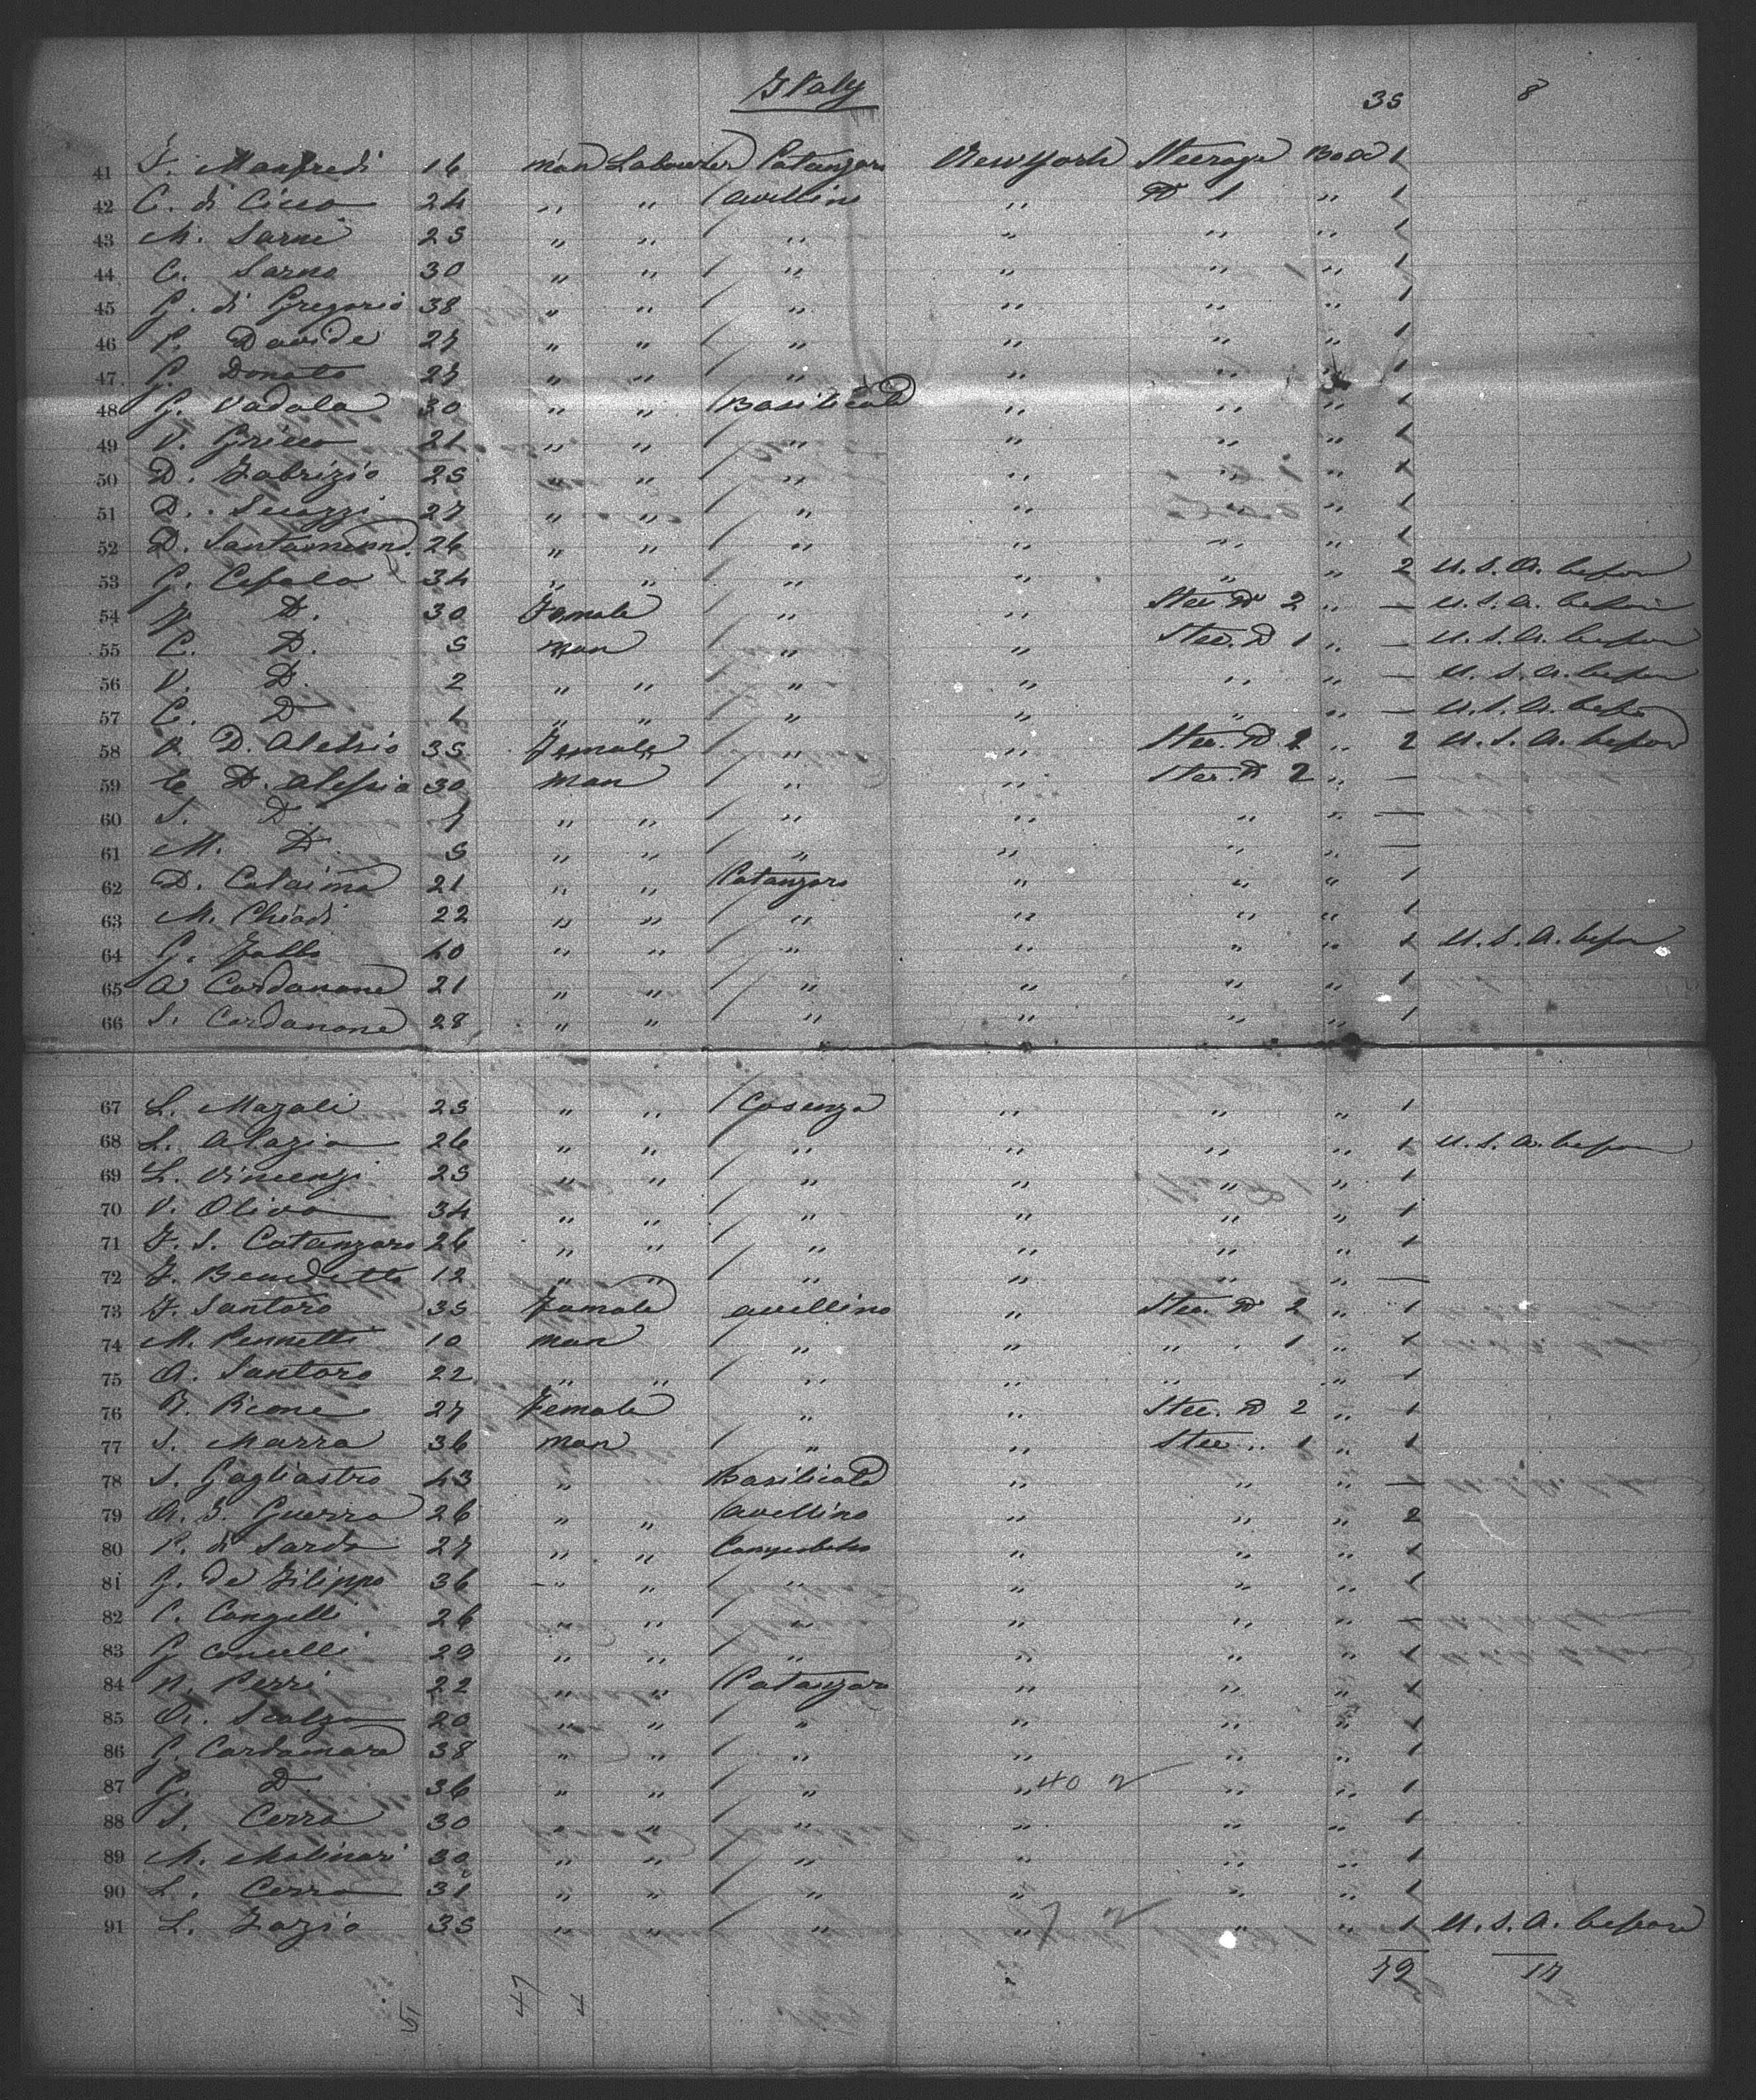 Italy
35 8
41 F. Manfredi 16 man Labourer Catanzaro New York Steerage Box 1
42 C. di Cicco 24 " " Avellino " D 1 " 1
43 M. Sarni 25 " " " " " " 1
44 C. Sarno 30 " " " " " " 1
45 G. di Gregorio 38 " " " " " " 1
46 P. Davide 27 " " " " " " 1
47 G. Donato 27 " " " " " " 1
48 G. Vadala 30 " " Basilicata " " " 1
49 V. Gricco 21 " " " " " " 1
50 D. Fabrizio 25 " " " " " " 1
51 D. Scuzzi 27 " " " " " " 1
52 D. 26 " " " " " " 1
53 G. Cefalo 34 " " " " " " 2 U.S.A. before
54 D. 30 Female " " Stee. D 2 " — U.S.A. before
55 C. D. 5 man " " Stee. D 1 " — U.S.A. before
56 V. D. 2 " " " " " " — U.S.A. before
57 C. D 1 " " " " " " — U.S.A. before
58 D. Alessio 35 Female " " Stee. D 2 " 2 U.S.A. before
59 D. Alessio 30 man " " Stee. D 2 " —
60 S. D. 7 " " " " " " —
61 M. D. 5 " " " " " " —
62 D. Cataima 21 " " Catanzaro " " " 1
63 M. Chiodi 22 " " " " " " 1
64 G. Fallo 40 " " " " " " 1 U.S.A. before
65 A Cardanone 21 " " " " " " 1
66 S. Cardanone 28 " " " " " " 1
67 L. Mazali 25 " " Cosenza " " " 1
68 L. Alazia 26 " " " " " " 1 U.S.A. before
69 L. Vincenzi 25 " " " " " " 1
70 V. Oliva 34 " " " " " " 1
71 F. S. Catanzaro 26 " " " " " " 1
72 F. Benedetto 12 " " " " " " —
73 F. Santoro 35 Female Avellino " Stee. D 2 " 1
74 M. Pennetti 10 man " " " 1 " 1
75 A. Santoro 22 " " " " " " 1
76 R. Picone 27 Female " " Stee. D 2 " 1
77 S. Marra 36 man " " Stee. " 1 " 1
78 S. Gagliastro 43 " Basilicata " " " —
79 A. S. Guerra 26 " " Avellino " " " 2
80 P. di Sarda 27 " " " " " 1
81 G. de Filippo 36 " " " " " " 1
82 C. Cangelli 26 " " " " " " —
83 G Concelli 29 " " " " " " 1
84 N. Perri 22 " " Catanzaro " " " 1
85 A. Scalzo 20 " " " " " " 1
86 G. Cardamare 38 " " " " " " 1
87 G. D. 36 " " " " 40 2 " " 1
88 S. Cerra 30 " " " " " " 1
89 M. Molinari 30 " " " " " " 1
90 L. Cerra 31 " " " " " " 1
91 L. Fazio 35 " " " " " " 1 U.S.A. before